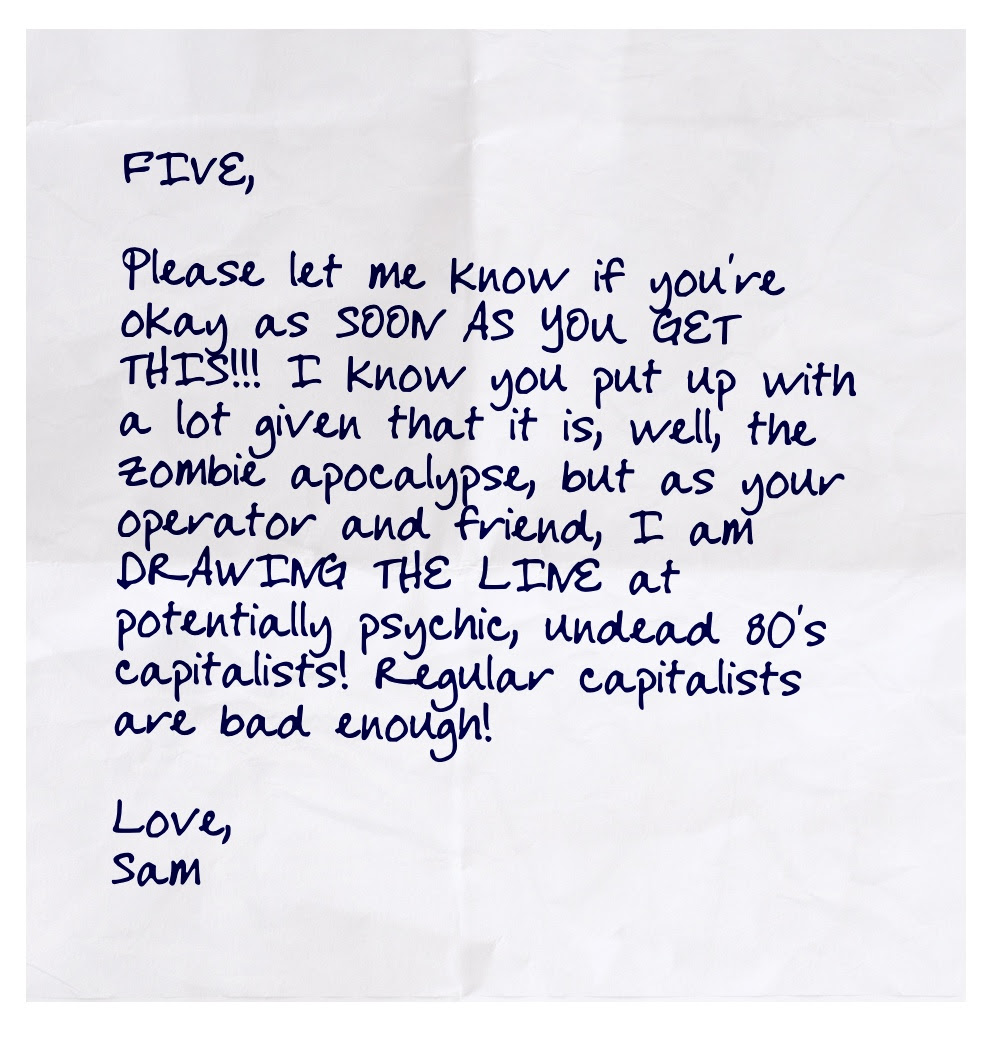 FIVE,
Please let me know if you're
okay as SOON AS YOU GET
THIS!!! I know you put up with
a lot given that it is, well, the
zombie apocalypse, but as your
operator and friend, I am
DRAWING THE LINE at
potentially psychic, undead 80's
capitalists! Regular capitalists
are bad enough!
Love,
Sam